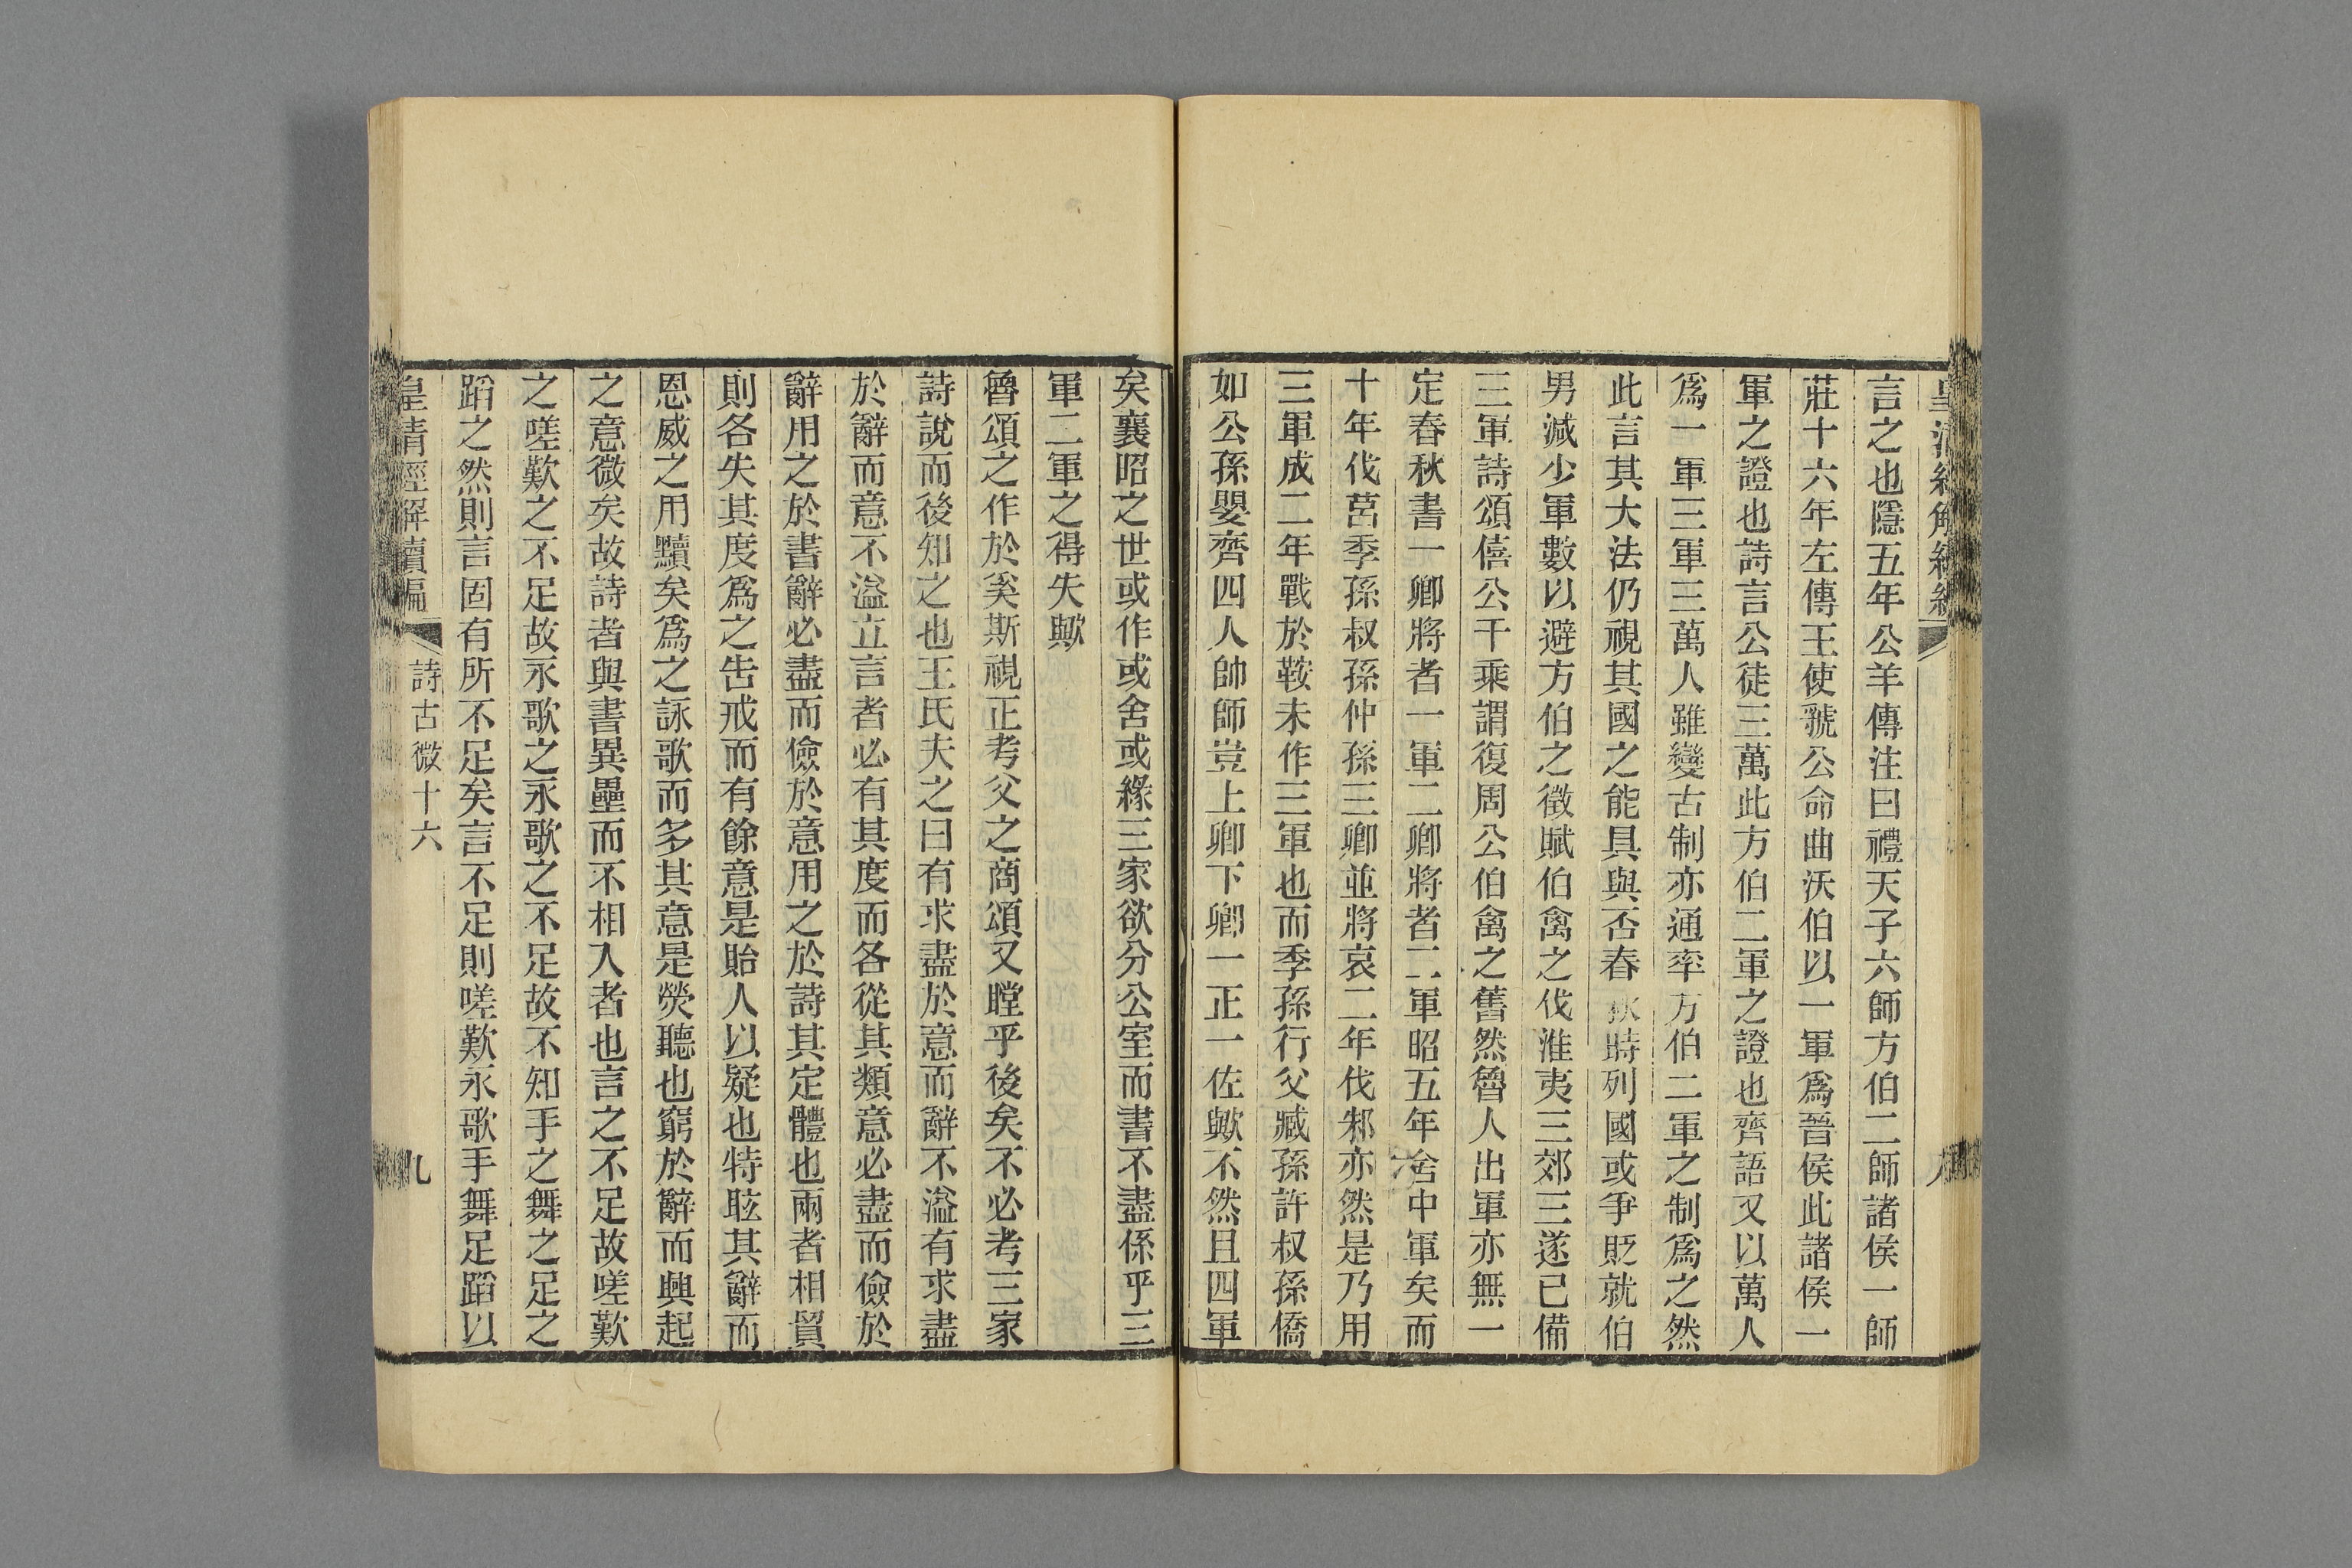 言之也隱五年公羊傳注曰禮天子六師方伯二師諸侯一師
莊十六年左傳王使虢公命曲沃伯以一軍爲晉侯此諸侯一
軍之證也詩言公徒三萬此方伯二軍之證也齊語又以萬人
爲一軍三軍三萬人雖變古制亦通率方伯二軍之制爲之然
此言其大法仍視其國之能具與否春秋時列國或爭貶就伯
男減少軍數以避方伯之徵賦伯禽之伐淮夷三郊三遂已備
三軍詩頌僖公千乘謂復周公伯禽之舊然魯人出軍亦無一
定春秋書一卿將者一軍二卿將者二軍昭五年舍中軍矣而
十年伐莒季孫叔孫仲孫三卿並將哀二年伐邾亦然是乃用
三軍成二年戰於鞍未作三軍也而季孫行父臧孫許叔孫僑
如公孫嬰齊四人帥師豈上卿下卿一正一佐歟不然且四軍
矣襄昭之世或作或舍或緣三家欲分公室而書不盡係乎三
軍二軍之得失歟
魯頌之作於奚斯視正考父之商頌又瞠乎後矣不必考三家
詩說而後知之也王氏夫之曰有求盡於意而辭不溢有求盡
於辭而意不溢立言者必有其度而各從其類意必盡而儉於
辭用之於書辭必盡而儉於意用之於詩其定體也兩者相貿
則各失其度爲之告戒而有餘意是貽人以疑也特眩其辭而
恩威之用黷矣爲之詠歌而多其意是熒聽也窮於辭而興起
之意微矣故詩者與書異壘而不相入者也言之不足故嗟歎
之嗟歎之不足故永歌之永歌之不足故不知手之舞之足之
蹈之然則言固有所不足矣言不足則嗟歎永歌手舞足蹈以
皇清經解續編
詩古微十六
九